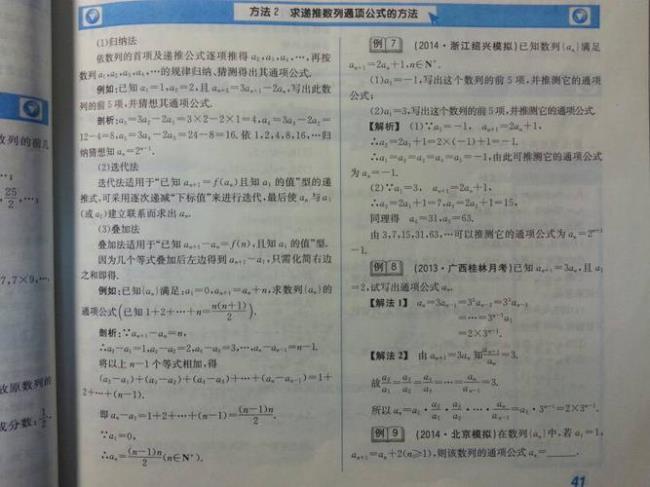 方法2 求递推数列通项公式的方法
(1)归纳法
依数列的首项及递推公式逐项推得 a₁,a₂,a₃,…,再按
数列 a₁,a₂,a₃,a₄,…的规律归纳、猜测得出其通项公式.
例如:已知 a₁=1,a₂=2,且 aₙ₊₂=3aₙ₊₁-2aₙ,写出此数
列的前5项,并猜想其通项公式.
剖析:a₃=3a₂-2a₁=3×2-2×1=4,a₄=3a₃-2a₂=
12-4=8,a₅=3a₄-2a₃=24-8=16.依1,2,4,8,16,…归
纳猜想知 aₙ=2ⁿ⁻¹.
(2)迭代法
迭代法适用于“已知 aₙ₊₁=f(aₙ)且知 a₁ 的值”型的递
推式,可采用逐次递减“下标值”来进行迭代,最后使 aₙ 与 a₁
(或 a₂)建立联系而求出 aₙ.
(3)叠加法
叠加法适用于“已知 aₙ₊₁-aₙ=f(n),且知 a₁ 的值”型.
因为几个等式叠加后左边得到 aₙ₊₁-a₁,只需化简右边
之和即得.
例如:已知{aₙ}满足:a₁=0,aₙ₊₁=aₙ+n,求数列{aₙ}的
通项公式(已知1+2+…+n=n(n+1)/2).
剖析:∵aₙ₊₁-aₙ=n,
∴a₂-a₁=1,a₃-a₂=2,a₄-a₃=3,…,aₙ-aₙ₋₁=n-1.
将以上 n-1 个等式相加,得
(a₂-a₁)+(a₃-a₂)+(a₄-a₃)+…+(aₙ-aₙ₋₁)=1+
2+…+(n-1).
即 aₙ-a₁=1+2+…+(n-1)=(n-1)n/2.
∵a₁=0,
∴aₙ=(n-1)n/2(n∈N*).
例7 (2014·浙江绍兴模拟)已知数列{aₙ}满足
aₙ₊₁=2aₙ+1,n∈N*.
(1)a₁=-1,写出这个数列的前5项,并推测它的通项公
式;
(2)a₁=3,写出这个数列的前5项,并推测它的通项公式.
【解析】 (1)∵a₁=-1, aₙ₊₁=2aₙ+1,
∴a₂=2a₁+1=2×(-1)+1=-1.
∴a₁=a₂=a₃=a₄=a₅=-1,由此可推测它的通项公式
为 aₙ=-1.
(2)∵a₁=3, aₙ₊₁=2aₙ+1,
∴a₂=2a₁+1=7,a₃=2a₂+1=15,
同理得 a₄=31,a₅=63.
由3,7,15,31,63,…可以推测它的通项公式为 aₙ=2ⁿ⁺¹
-1.
例8 (2013·广西桂林月考)已知 aₙ₊₁=3aₙ,且 a₁
=2,试写出通项公式 aₙ.
【解法1】 aₙ=3aₙ₋₁=3²aₙ₋₂=3³aₙ₋₃
=…=3ⁿ⁻¹a₁
=2×3ⁿ⁻¹.
【解法2】 由 aₙ₊₁=3aₙ 知 aₙ₊₁/aₙ=3.
故 a₂/a₁=a₃/a₂=a₄/a₃=…=aₙ/aₙ₋₁=3.
所以 aₙ=a₁·a₂/a₁·a₃/a₂·…·aₙ/aₙ₋₁=a₁·3ⁿ⁻¹=2×3ⁿ⁻¹.
例9 (2014·北京模拟)在数列{aₙ}中,若 a₁=1,
aₙ₊₁=aₙ+2(n≥1),则该数列的通项公式 aₙ=______.
41
数列的前几
25/2,…;
7,7×9,…
故原数列的
成分数:1/2,